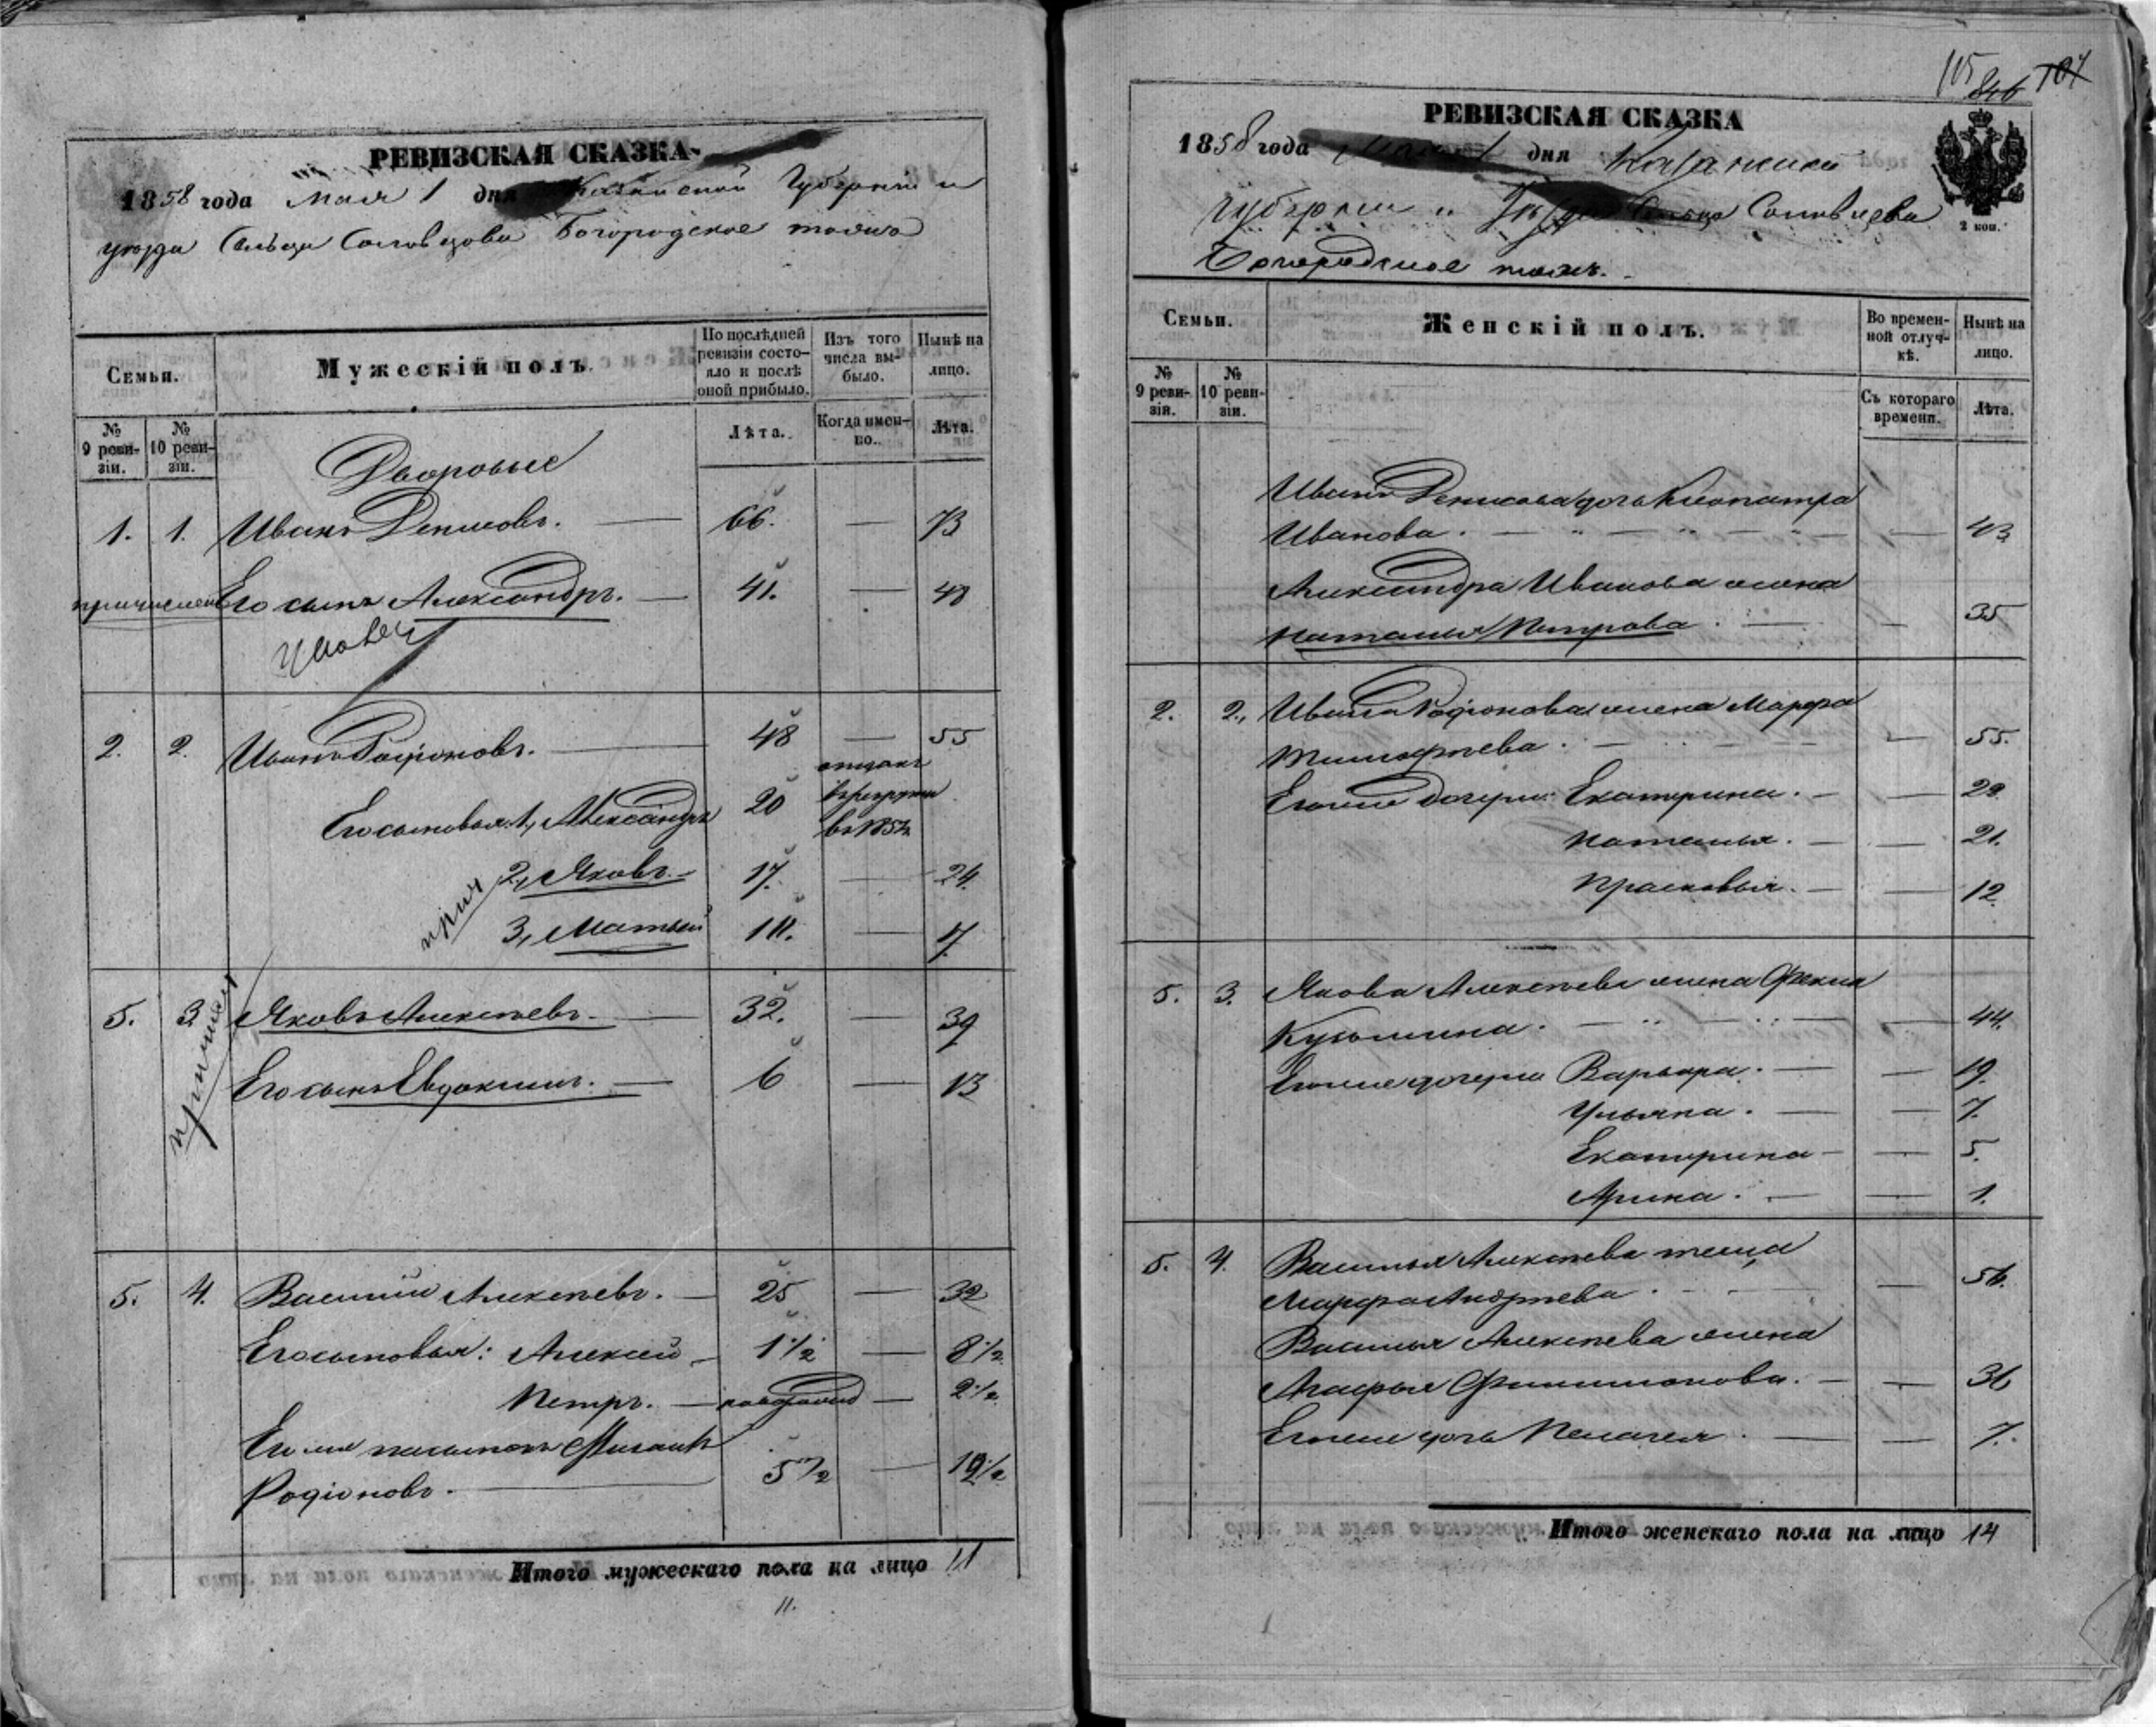 РЕВИЗСКАЯ СКАЗКА
1858 года мая 1 дня Казанской Губерніи и
уѣзда Сельца Соловцова Богородское тожъ
Семьи.
Мужескій полъ.
По послѣдней ревизіи состояло и послѣ оной прибыло.
Изъ того числа выбыло.
Нынѣ на лицо.
№ 9 ревизіи.
№ 10 ревизіи.
Лѣта.
Когда именно.
Лѣта.
Дворовые
1. 1. Иванъ Денисовъ. — 66. — 73
причислен Его сынъ Александръ. — 41. — 48
2. 2. Иванъ Родіоновъ. — 48 — 55
Его сыновья: 1, Александръ 20 отданъ
в рекруты
въ 185
2, Яковъ. 17. — 24.
прич
3, Матвей 10. — 17.
5. 3. Яковъ Алексѣевъ. — 32. — 39
Его сынъ Евдокимъ. — 6 — 13
5. 4. Василій Алексѣевъ. — 25 — 32
Его сыновья: Алексей — 1 1/2 — 8 1/2
Петръ. — новорожд — 2 1/2
Его же пасынокъ
Родіоновъ. — 5 1/2 — 12 1/2
Итого мужескаго пола на лицо 11
11.
115 846 107
РЕВИЗСКАЯ СКАЗКА
1858 года Мая 1 дня Казанской
Губерніи и Уѣзда Сельца Соловцова
Богородское тожъ.
2 коп.
Семьи.
Женскій полъ.
Во временной отлучкѣ.
Нынѣ на лицо.
№ 9 ревизіи.
№ 10 ревизіи.
Съ котораго времени.
Лѣта.
Ивана Денисова дочь Клеопатра
Иванова. — — 43
Александра Иванова жена
Наталья Петрова. — — 35
2. 2. Ивана Родіонова жена Марфа
Тимофѣева. — — 55.
Его же дочери: Екатерина. — — 22.
Наталья. — — 21.
Прасковья. — — 12.
5. 3. Якова Алексѣева жена Фекла
Кузьмина. — — 44.
Его же дочери Варвара. — — 19.
Ульяна. — — 7.
Екатерина — — 5.
Арина. — — 1.
5. 4. Василья Алексѣева теща
Марфа Андрѣева. — 56.
Василья Алексѣева жена
Агафья Филимонова. — — 36
Его же дочь Пелагея. — — 7.
Итого женскаго пола на лицо 14